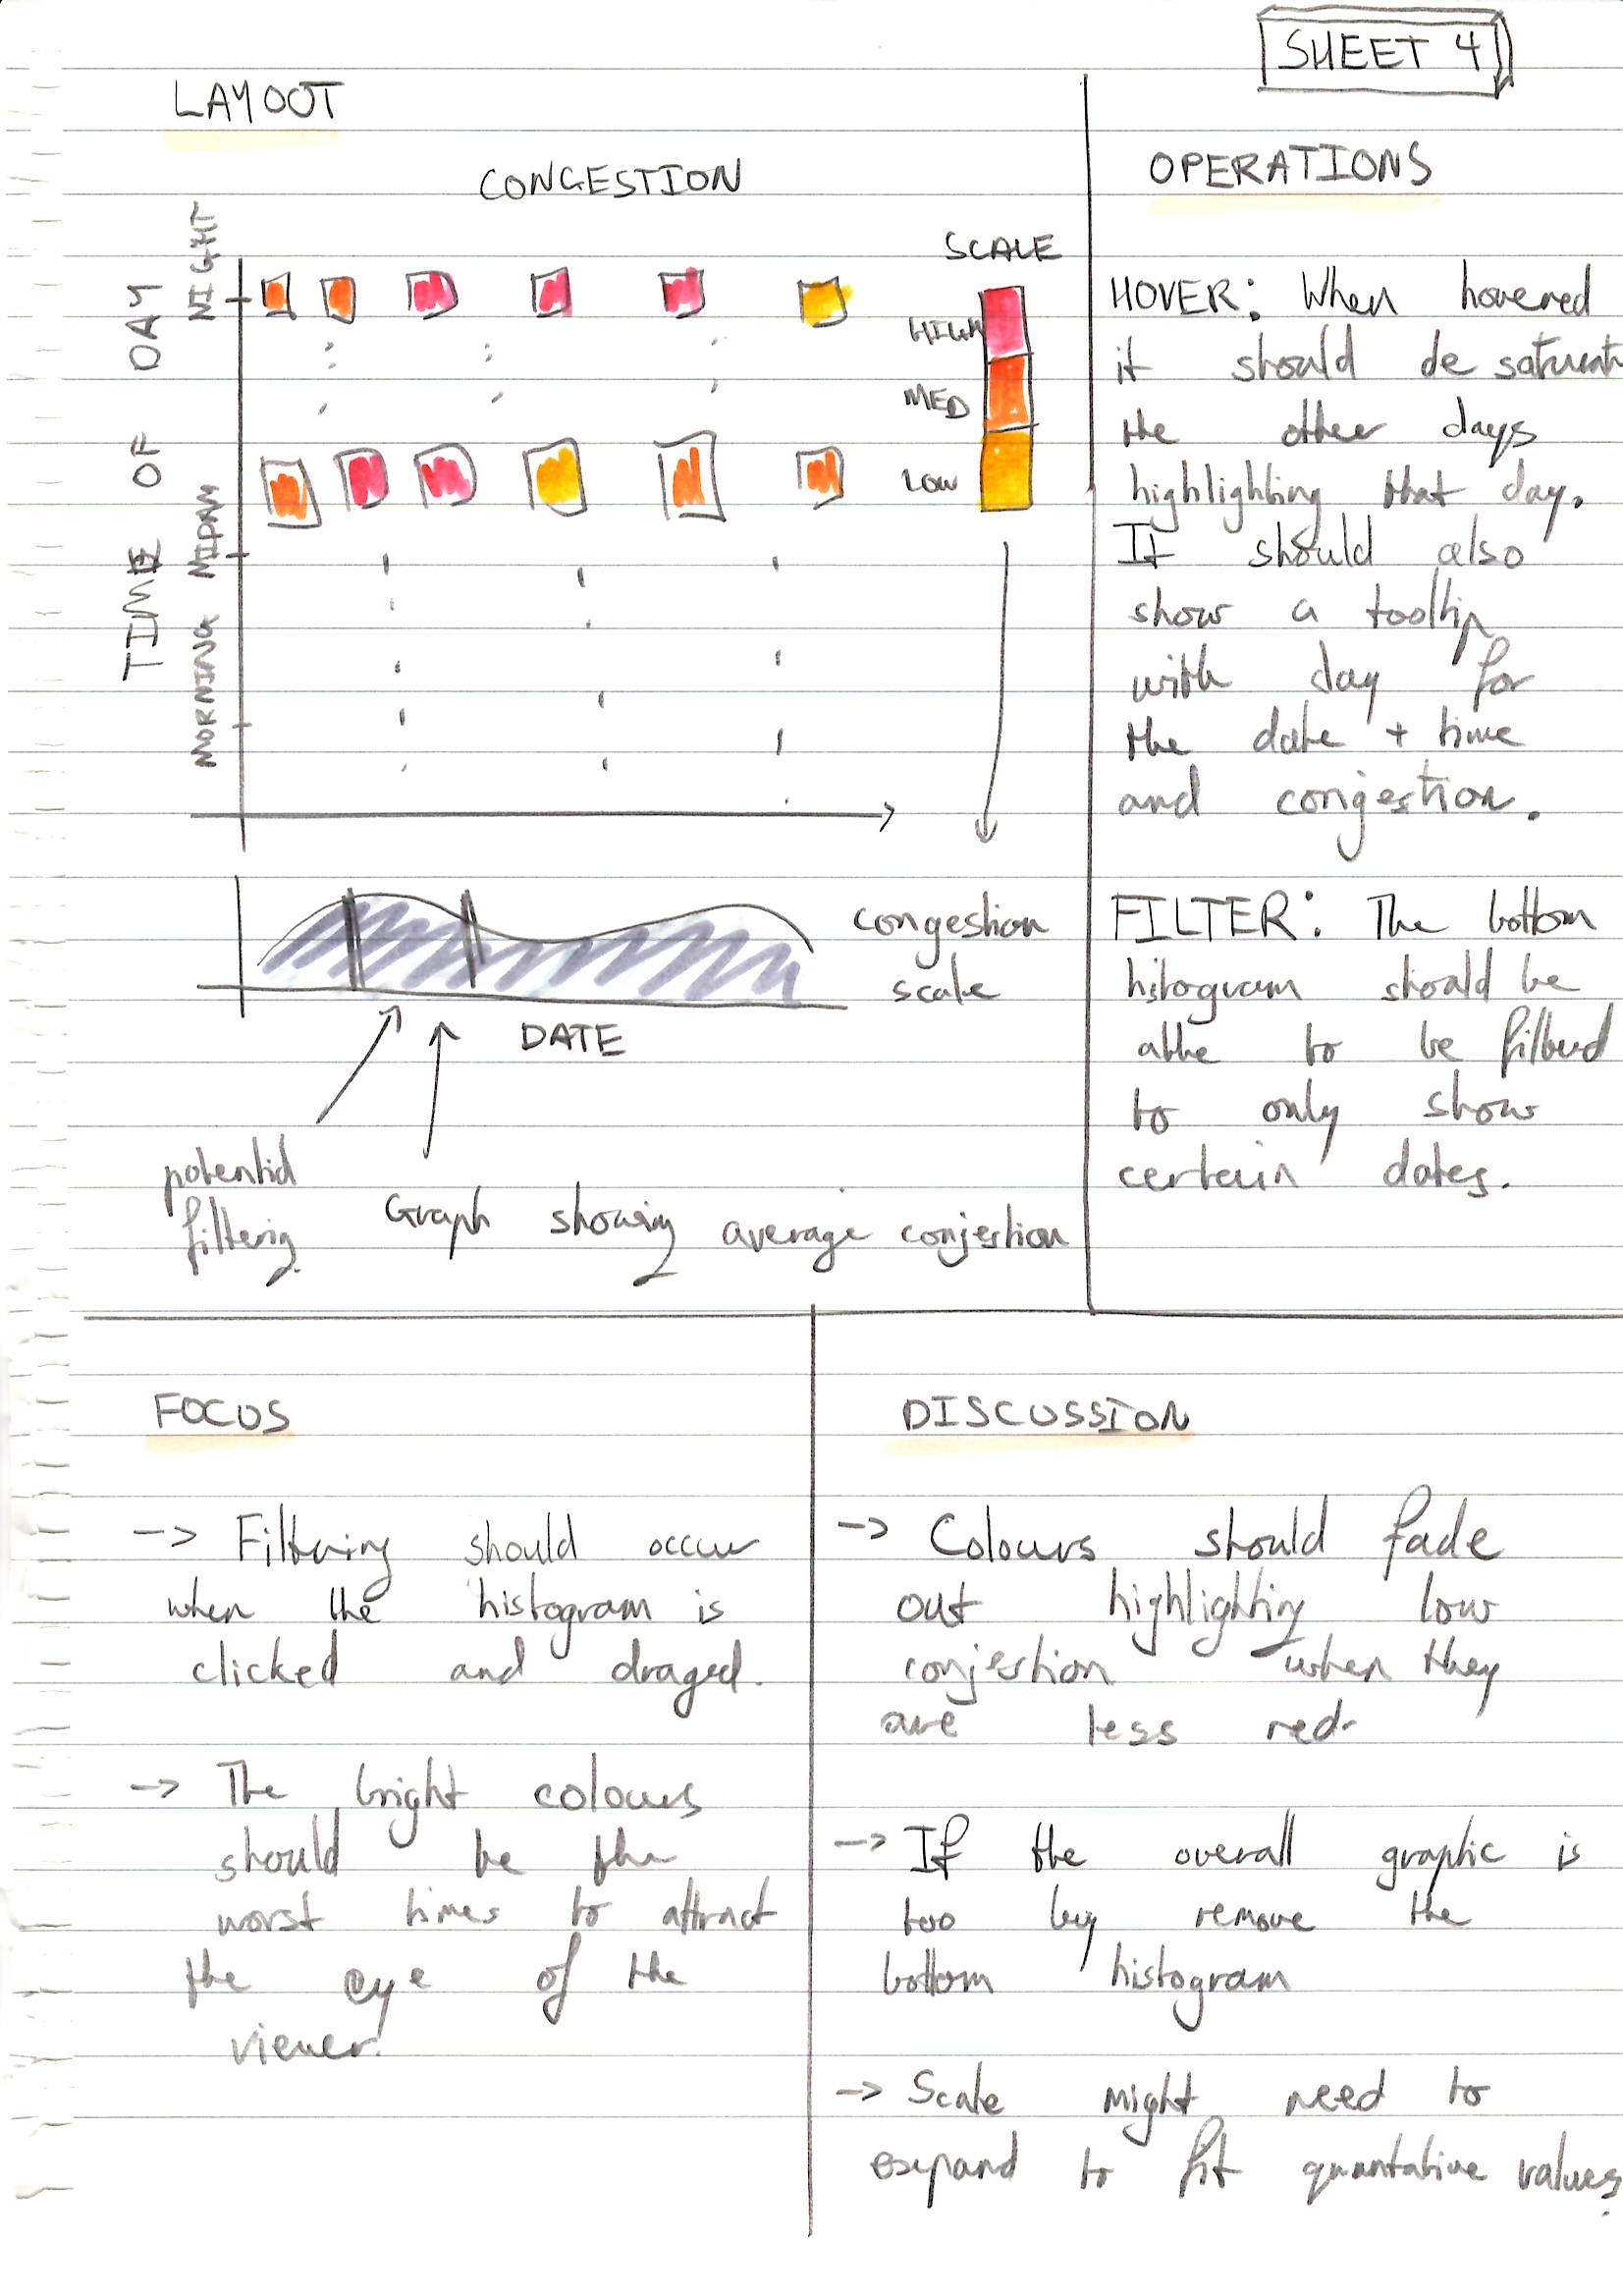 SHEET 4
LAYOUT
CONGESTION
SCALE
HIGH
MED
LOW
TIME OF DAY
NIGHT
MIDDAY
MORNING
congestion
scale
DATE
potential
filtering
Graph showing average conjestion
OPERATIONS
HOVER: When hovered
it should de saturate
the other days
highlighting that day.
It should also
show a tooltip
with day for
the date + time
and congestion.
FILTER: The bottom
hitogram should be
able to be filtered
to only show
certain dates.
FOCUS
-> Filtering should occur
when the histogram is
clicked and draged.
-> The bright colours
should be the
worst times to attract
the eye of the
viewer.
DISCUSSION
-> Colours should fade
out highlighting low
conjestion when they
are less red.
-> If the overall graphic is
too big remove the
bottom histogram
-> Scale might need to
expand to fit quantative values.